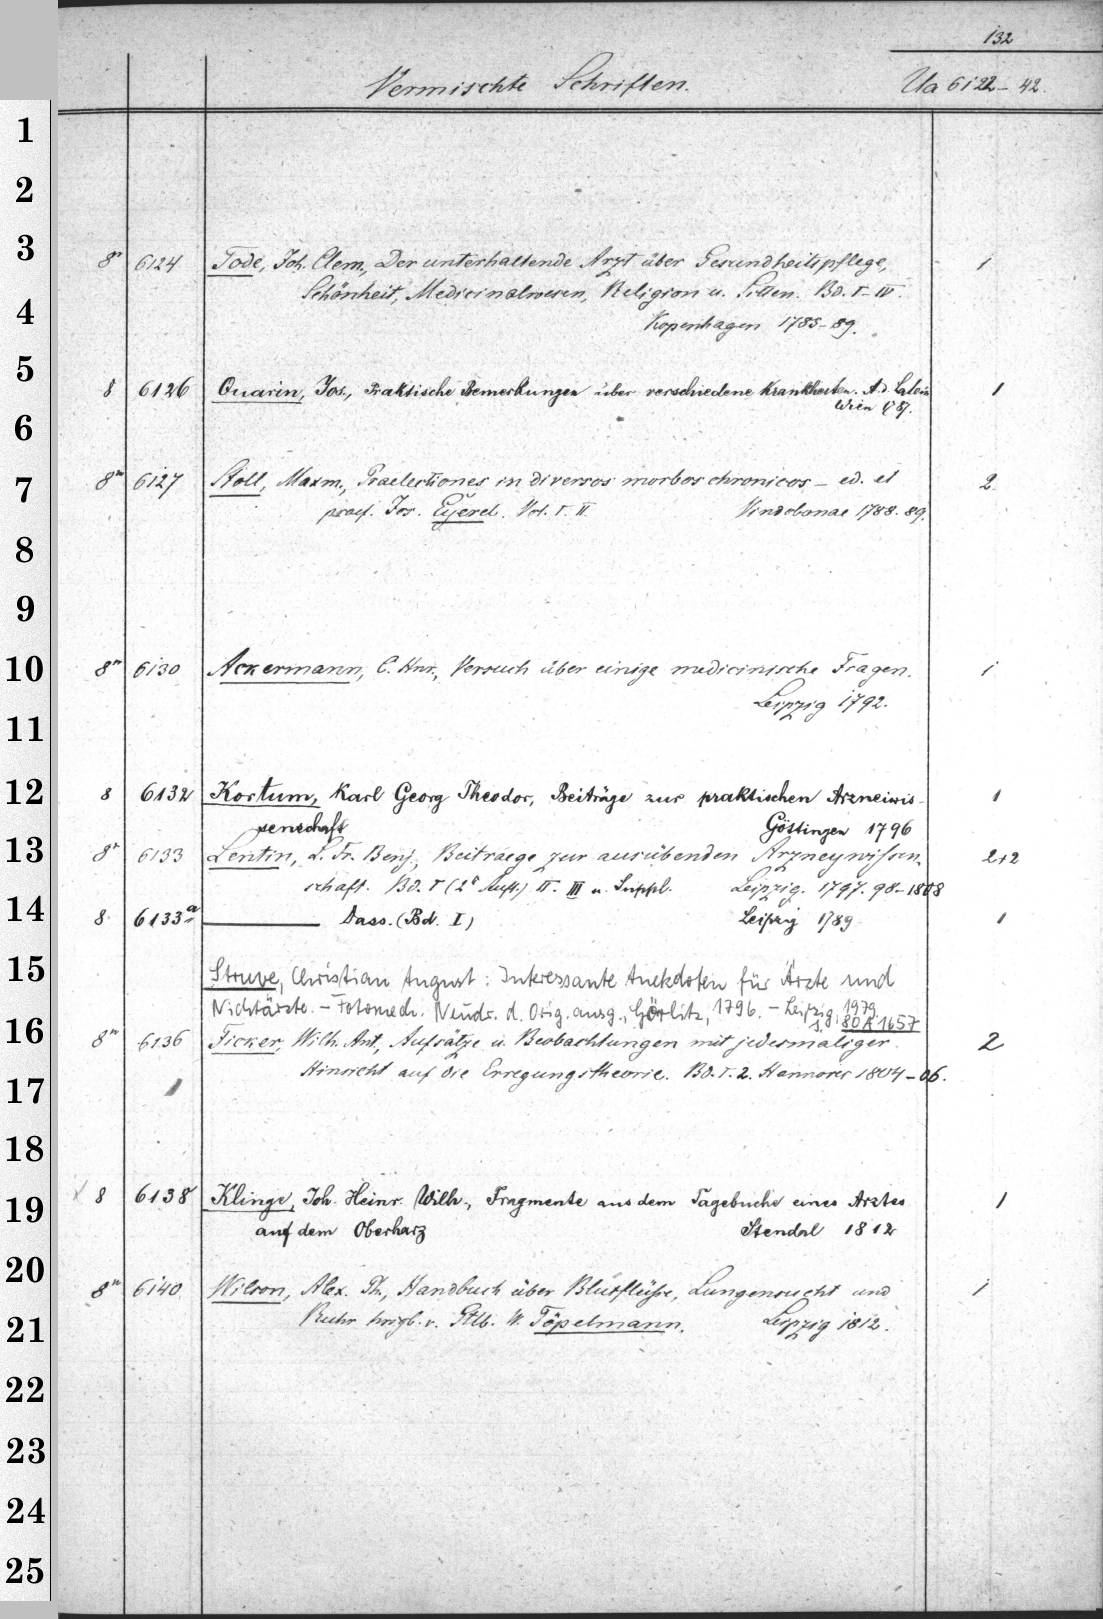 132
Vermischte Schriften. Ua 6122-42.
1
2
3
8° 6124 Tode, Joh. Clem., Der unterhaltende Arzt über Gesundheitspflege, 1
4 Schönheit, Medicinalwesen, Religion u. Sitten. Bd. I-IV.
Kopenhagen 1785-89.
5
8 6126 Quarin, Jos., Praktische Bemerkungen über verschiedene Krankheiten. A. d. Latein 1
Wien 1787.
6
7 8° 6127 Stoll, Maxm., Praelectiones in diversos morbos chronicos - ed. et 2
praef. Jos. Eyerel. Vol. I. II. Vindobonae 1788. 89.
8
9
10 8° 6130 Ackermann, C. Hnr., Versuch über einige medicinische Fragen. 1
Leipzig 1792.
11
12 8 6132 Kortum, Karl Georg Theodor, Beiträge zur praktischen Arzneiwis- 1
senschaft Göttingen 1796
13 8° 6133 Lentin, L. Fr. Benj., Beitraege zur ausübenden Arzneywissen- 2+2
schaft. Bd. I (2e Aufl.) II. III u. Suppl. Leipzig. 1797. 98-1808
14 8 6133a Dass. (Bd. I) Leipzig 1789 1
15 Struve, Christian August: Interessante Anekdoten für Ärzte und
Nichtärzte. - Fotomech. Neudr. d. Orig.ausg., Görlitz, 1796. - Leipzig, 1979
s. 80 A 1657
16 8° 6136 Ficker, Wilh. Ant., Aufsätze u. Beobachtungen mit jedesmaliger 2
Hinsicht auf die Erregungstheorie. Bd. I. 2. Hannover 1804-06.
17
18
19 8 6138 Klinge, Joh. Heinr. Wilh., Fragmente aus dem Tagebuche eines Arztes 1
auf dem Oberharz Stendal 1812
20 8° 6140 Wilson, Alex. Ph., Handbuch über Blutflüsse, Lungensucht und 1
21 Ruhr hrsgb. v. Gttlb. W. Töpelmann. Leipzig 1812.
22
23
24
25